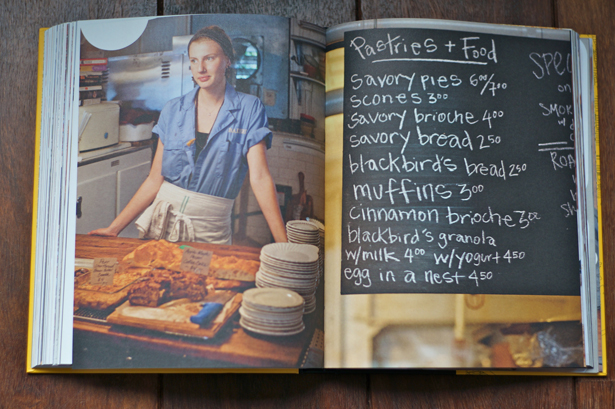 Pastries + Food
savory pies 6⁰⁰/7⁰⁰
scones 3⁰⁰
savory brioche 4⁰⁰
savory bread 2⁵⁰
blackbird's bread 2⁵⁰
muffins 3⁰⁰
cinnamon brioche 3⁰⁰
blackbird's granola
w/milk 4⁰⁰ w/yogurt 4⁵⁰
egg in a nest 4⁵⁰
SPEC
on
SMOK
ROA